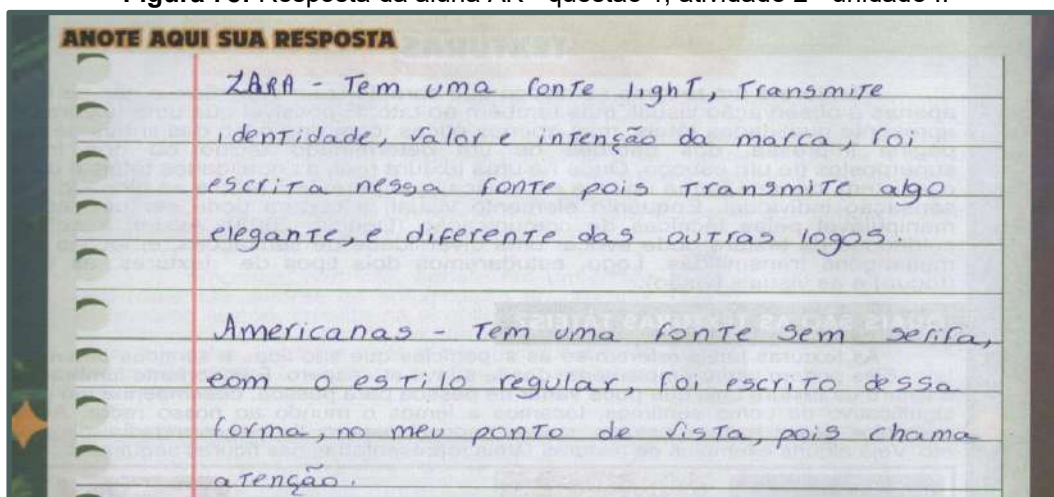 ANOTE AQUI SUA RESPOSTA
ZARA - Tem uma fonte light, Transmite
identidade, valor e intenção da marca, foi
escrita nessa fonte pois transmite algo
elegante, e diferente das outras logos.
Americanas - Tem uma fonte sem serifa,
com o estilo regular, foi escrito dessa
forma, no meu ponto de vista, pois chama
atenção.